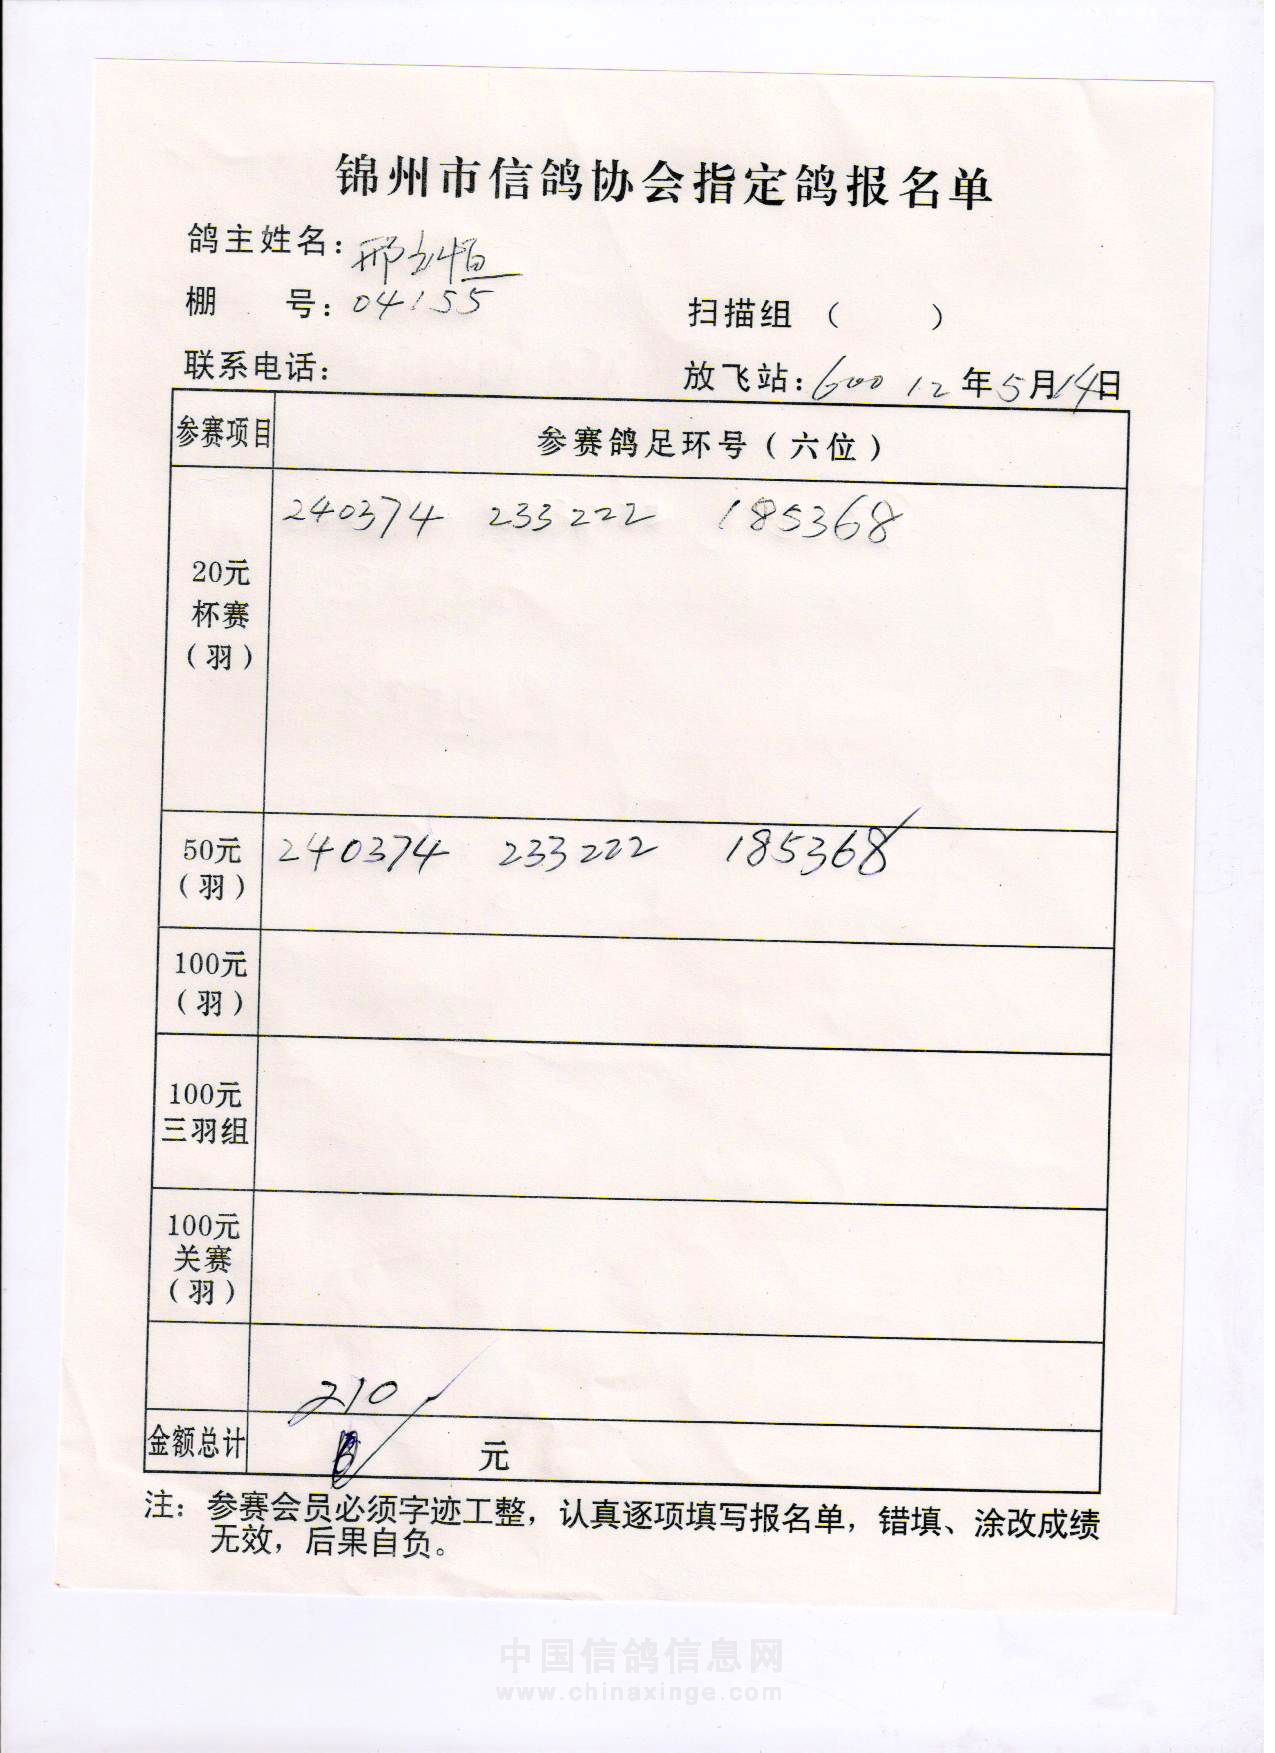 锦州市信鸽协会指定鸽报名单
鸽主姓名：邢立恒
棚 号：04155 扫描组（ ）
联系电话： 放飞站：600 12年5月14日
参赛项目 参赛鸽足环号（六位）
240374 233222 185368
20元
杯赛
（羽）
50元 240374 233222 185368
（羽）
100元
（羽）
100元
三羽组
100元
关赛
（羽）
210
金额总计 元
注：参赛会员必须字迹工整，认真逐项填写报名单，错填、涂改成绩
无效，后果自负。
中国信鸽信息网
www.chinaxinge.com